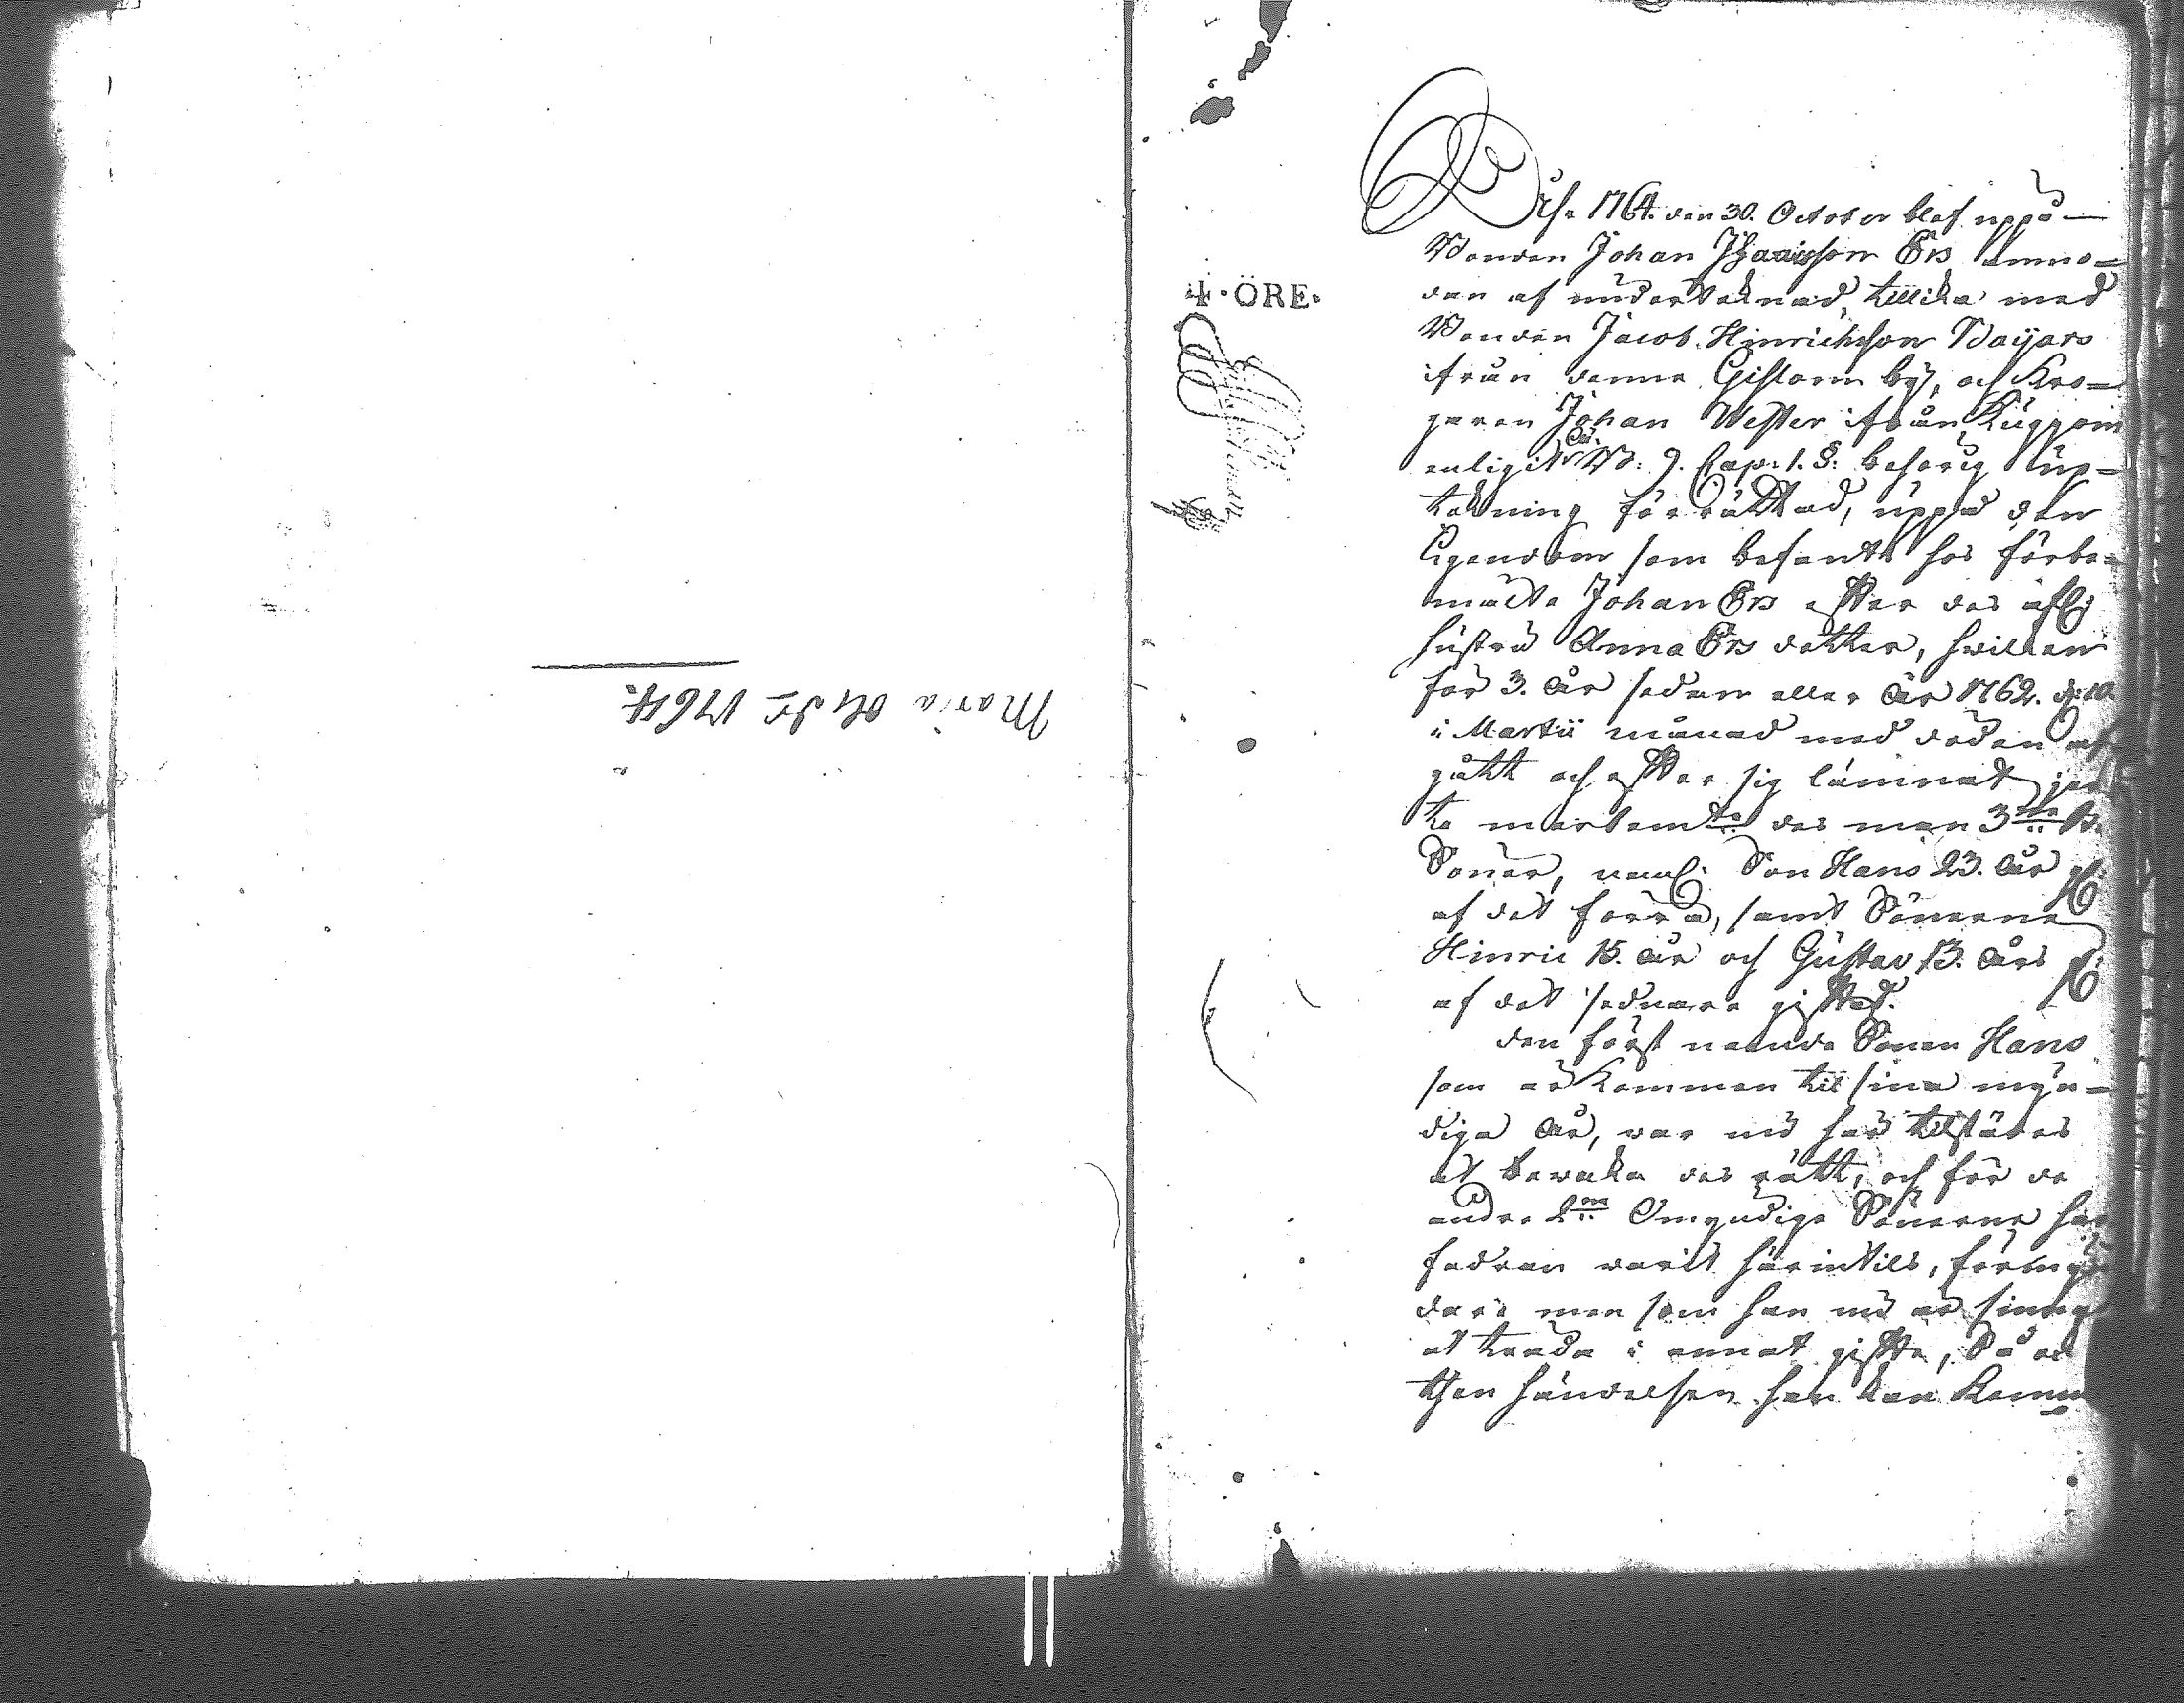 Maria Md: 1764.
4·ÖRE·
Åhr 1764. den 30. October blef uppå
Bonden Johan Isaacsson Ers anmo=
dan af underteknad, tillika med
Bonden Jacob Hinrichsson Bäijars
ifrån denna Gislom by, och Kro=
garen Johan Wester ifrån Kuggom
enligit Ä: B: 9. Cap: 1. §: behörig up=
tekning förrättad, uppå den
Egendom som befants hos förbe=
mälte Johan Ers effter des afl:
hustru Anna Ers dotter, hvilken
för 3. år sedan eller år 1762. d: 10.
i Martii månad med döden af
gått och effter sig lämnat
te des man 3ne
Söner, neml: Son Hans 23. år
af det förra, samt Sönerne
Hinric 15. år och Gustav 13. års
af det sednare gifftet.
Den först nämnde Sonen Hans
som är kommen til sina myn=
diga år, var nu här tilstädes
at bevaka des rätt, och för de
andre 2ne Omyndige Sönerne har
fadren varit härintils, förmyn
dare men som han nu är sinnad
at träda i annat giffte, Så
then händelsen han kan komma